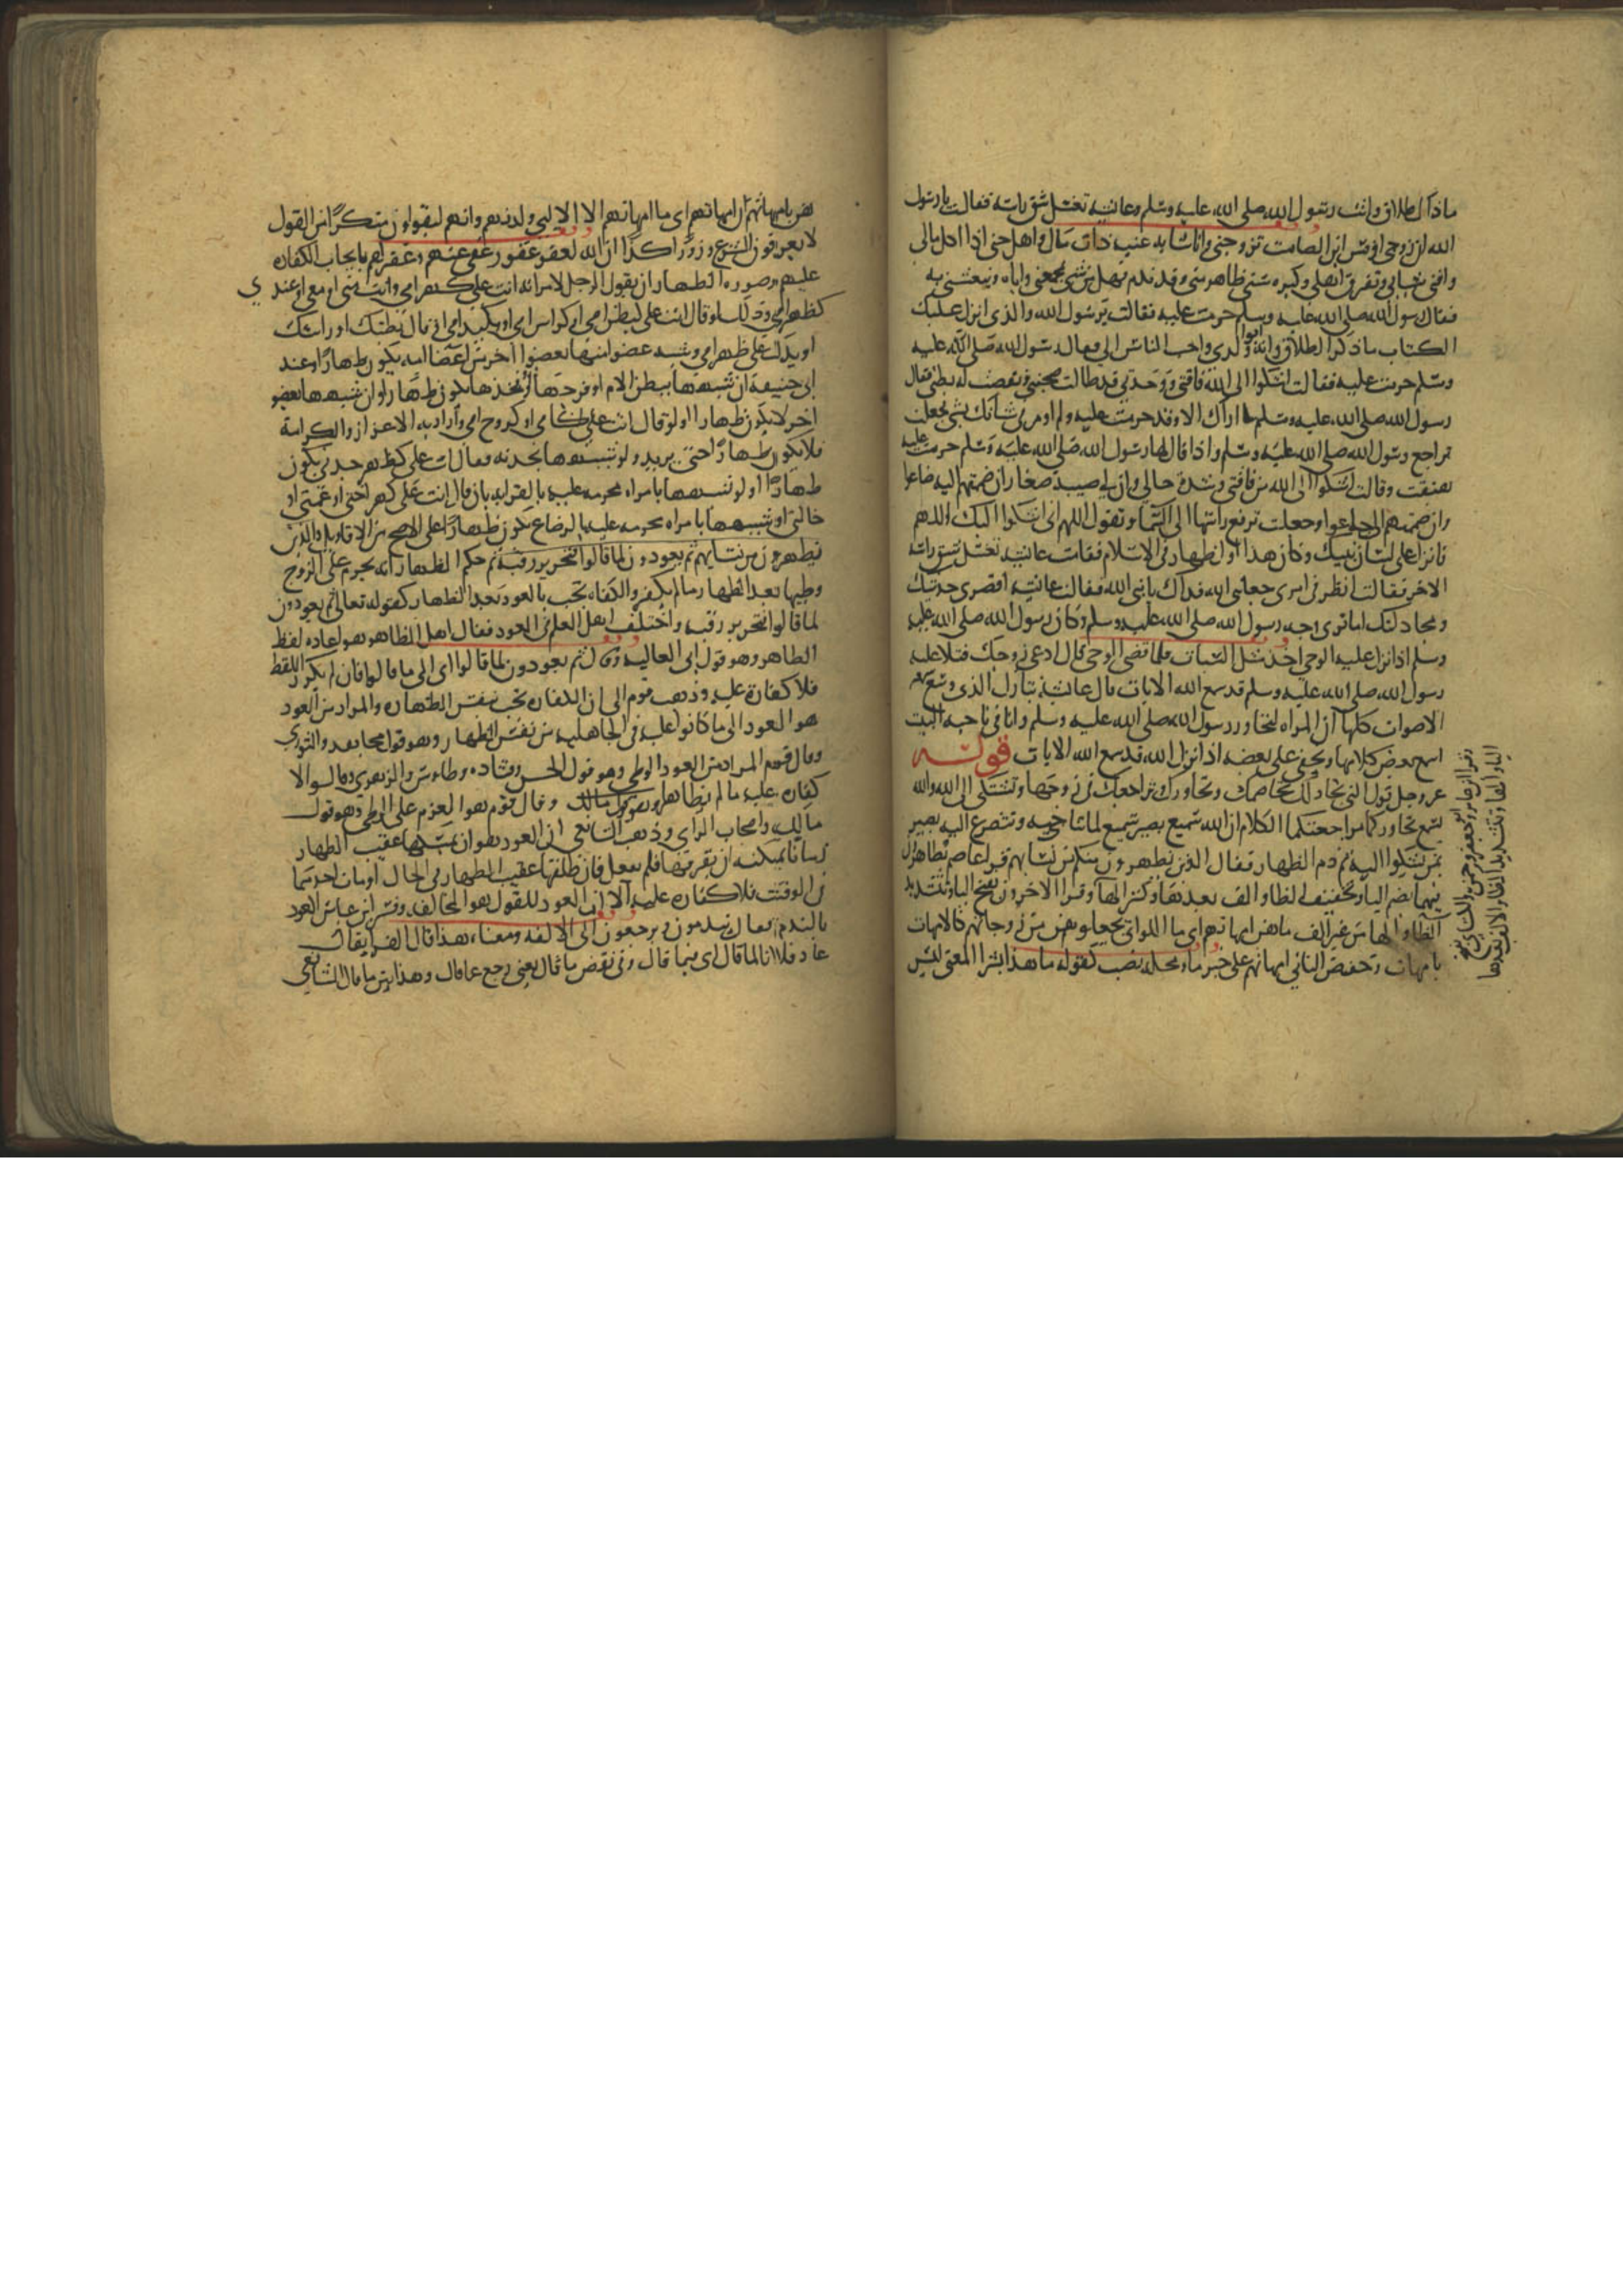 ماذاك طلاق واتت رسول الله صلى الله عليه وسلم وعائشه تغسل شق راسه فقالت يا رسول
الله ان زوجي اوس ابن الصامت تزوجني وانا شابه غنيه ذات مال واهل حتى اذا اكل مالي
وافنى شبابي وتفرق اهلي وكبر سني ظاهر مني وقد ندم فهل من شي يجمعني واياه وينعشني به
فقال رسول الله صلى الله عليه وسلم حرمت عليه فقالت يرسول الله والذي انزل عليك
الكتاب ما ذكر الطلاق وانه ابو ولدي واحب الناس الي وقال رسول الله صلى الله عليه
وسلم حرمت عليه فقالت اشكوا الى الله فاقتي ووحدتي قد طالت صحبتي ونفضت له بطني فقال
رسول الله صلى الله عليه وسلم ما اراك الا وقد حرمت عليه ولم اومر في شانك بشي فجعلت
تراجع رسول الله صلى الله عليه وسلم واذا قال لها رسول الله صلى الله عليه وسلم حرمت عليه
هتفت وقالت اشكوا الى الله من فاقتي وشدة حالي وان لي صبية صغار ان ضممتهم اليه ضاعوا
وان ضممتهم الي جاعوا وجعلت ترفع راسها الى السما وتقول اللهم اني اشكوا اليك اللهم
فانزل على لسان نبيك وكان هذا اول ظهار في الاسلام فقامت عائشه تغسل شق راسه
الاخر فقالت انظر في امري جعلني الله فداك يا نبي الله فقالت عائشه اقصري حديثك
ومجادلتك اما تري وجه رسول الله صلى الله عليه وسلم وكان رسول الله صلى الله عليه
وسلم اذا نزل عليه الوحي اخذ مثل السبات فلما قضى الوحي قال ادعي زوجك فتلا عليه
رسول الله صلى الله عليه وسلم قد سمع الله الايات قال عائشة تبارك الذي وسع سمعه
الاصوات كلها ان المراه لتحاور رسول الله صلى الله عليه وسلم وانا في ناحيه البيت
اسمع بعض كلامها ويخفى على بعضه اذ انزل الله قد سمع الله الايات قوله
عز وجل قول التي تجادلك تخاصمك وتحاورك وتراجعك في زوجها وتشتكي الى الله والله
يسمع تحاوركما مراجعتكما الكلام ان الله سميع بصير سميع لما تناجيه وتتضرع اليه بصير
بمن يشكوا اليه ثم ذم الظهار فقال الذين يظهرون منكم من نسايهم قرا عاصم يظاهرون
فيهما بضم الياء وتخفيف الظا والف بعدها وكسر الها وقرا الاخرون بفتح اليا وتشديد
الظا والها من غير الف ما هن امهاتهم اي ما اللواتي يجعلونهن من زوجاتهم كالامهات
بامهات وتخفض الثاني امهاتهم على خبر ما ومحله نصب كقوله ما هذا بشرا المعنى ليس
وقرا ابن عامر وابو جعفر وحمزه والكسائي بفتح
الياء والها وتشديد الظا والالف بعدها
هن بامهاتهم ان امهاتهم اي ما امهاتهم الا اللايي ولدنهم وانهم ليقولون منكرا من القول
لا يعرف في الشرع وزورا كذبا ان الله لعفو غفور عفى عنهم وغفر لهم بايجاب الكفاره
عليهم وصوره الظهار ان يقول الرجل لامراته انت علي كظهر امي وانت مني او معي او عندي
كظهر امي وكذلك لو قال انت علي كبطن امي او كراس امي او كيد امي او قال بطنك او راسك
او يدك علي كظهر امي وشبه عضوا منها بعضو اخر من اعضا امه يكون ظهارا وعند
ابي حنيفة ان شبهها ببطن الام او فرجها او فخذها يكون ظهارا وان شبهها بعضو
اخر لا يكون ظهارا ولو قال انت علي كامي او كروح امي واراد به الاعزاز والكرامة
فلا يكون ظهارا حتى يريد ولو شبهها بجدته فقال انت علي كظهر جدتي يكون
ظهارا ولو شبهها بامراه محرمه عليه بالقرابه بان قال انت علي كظهر اختي او عمتي او
خالتي او شبهها بامراه محرمه عليه بالرضاع يكون ظهارا على الاصح من الاقاويل والذين
يظهرون من نسايهم ثم يعودون لما قالوا فتحرير رقبة ثم حكم الظهار انه يحرم على الزوج
وطيها بعد الظهار ما لم يكفر والكفاره تجب بالعود بعد الظهار كقوله تعالى ثم يعودون
لما قالوا فتحرير رقبه واختلف اهل العلم في العود فقال اهل الظاهر هو اعاده لفظ
الظاهر وهو قول ابي العاليه وقال ثم يعودون لما قالوا اي الى ما قالوا فان لم يكرر اللفظ
فلا كفارة عليه وذهب قوم الى ان الكفاره تجب بنفس الظهار والمراد من العود
هو العود الى ما كانوا عليه في الجاهليه من نفس الظهار وهو قول مجاهد والثوري
وقال قوم المراد من العود الوطي وهو قول الحسن وقتاده وطاوس والزهري وقالوا لا
كفاره عليه ما لم يطاها وهو قول مالك وقال قوم هو العزم على الوطي وهو قول
مالك واصحاب الراي وذهب الشافعي ان العود هو ان يمسكها عقيب الظهار
زمانا يمكنه ان يفرقها فلم يفعل فان طلقها عقيب الظهار في الحال او مات احدهما
في الوقت فلا كفاره عليه الا ان العود للقول هو المخالفه وفسر ابن عباس العود
بالندم فقال يندمون ويرجعون الى الالفه ومعناه هذا قال الفراء يقال
عاد فلان لما قال اي فيما قال وفي نقض ما قال يعني رجع عما قال وهذا يبين ما قال الشافعي